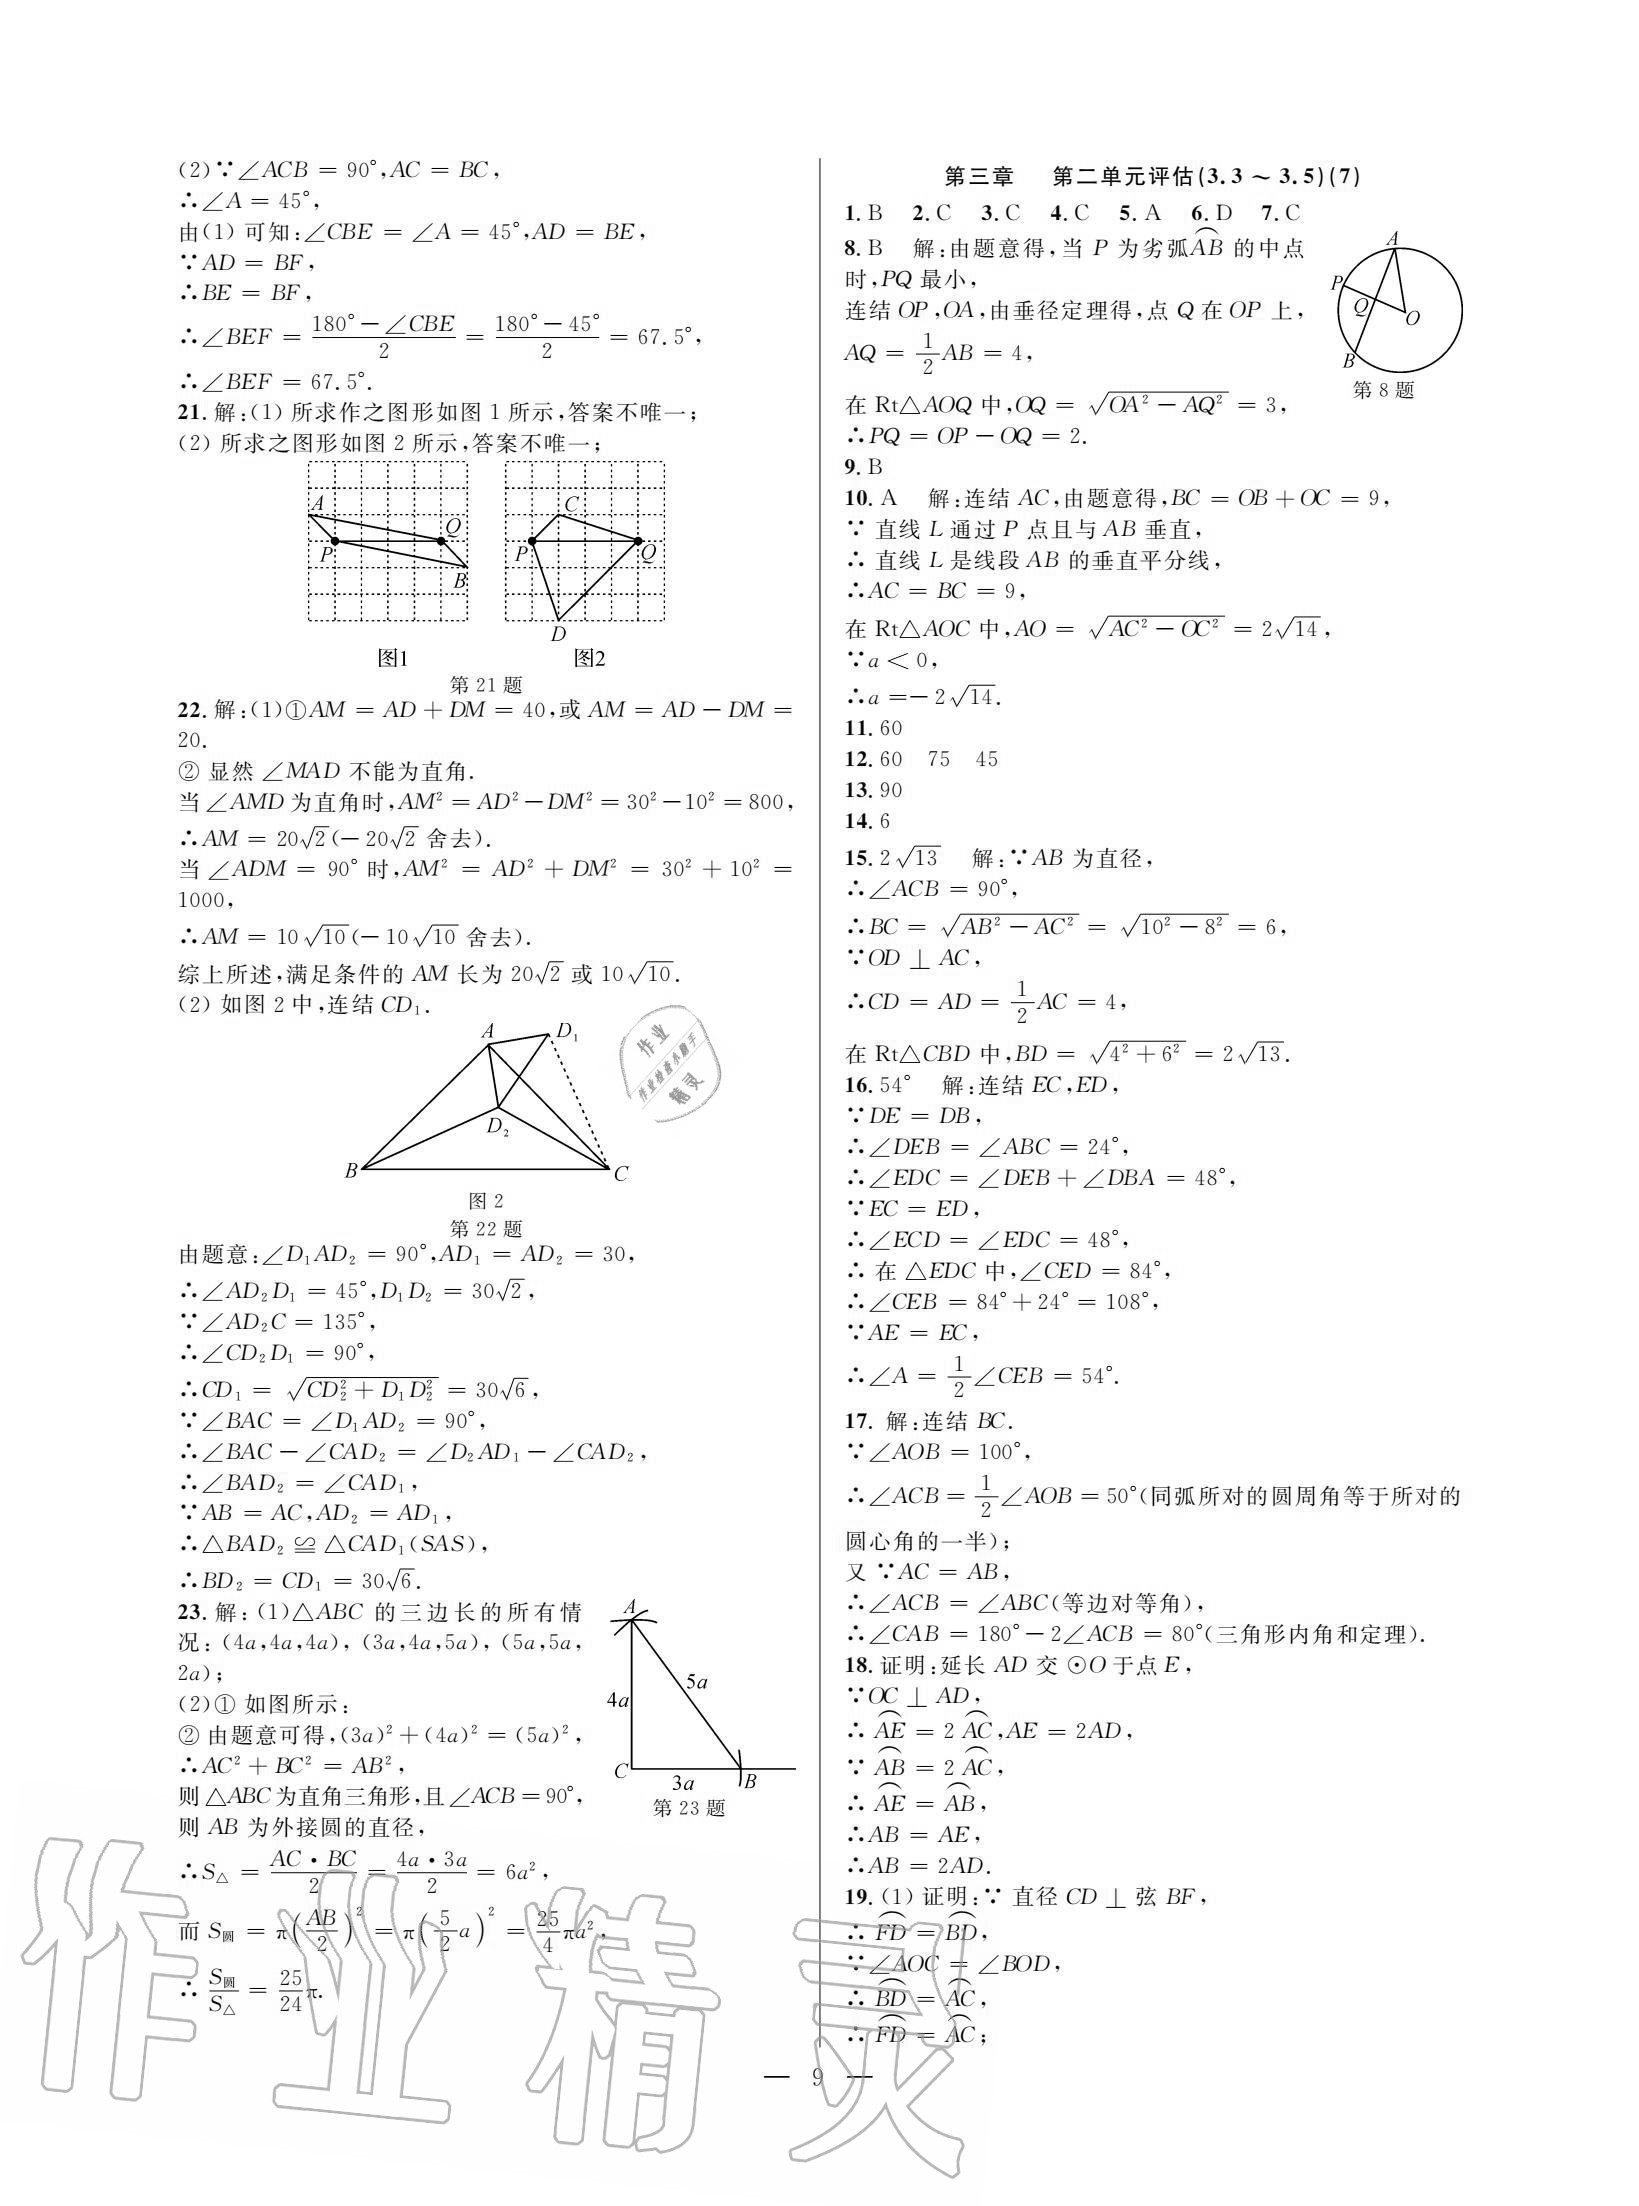 (2)∵∠ACB = 90°,AC = BC,
∴∠A = 45°,
由(1) 可知:∠CBE = ∠A = 45°,AD = BE,
∵AD = BF,
∴BE = BF,
∴∠BEF = (180°-∠CBE)/2 = (180°-45°)/2 = 67.5°,
∴∠BEF = 67.5°.
21. 解:(1) 所求作之图形如图 1 所示,答案不唯一;
(2) 所求之图形如图 2 所示,答案不唯一;
A P Q B
C P Q D
图1 图2
第 21 题
22. 解:(1)①AM = AD + DM = 40,或 AM = AD - DM =
20.
② 显然 ∠MAD 不能为直角.
当 ∠AMD 为直角时,AM² = AD² - DM² = 30² - 10² = 800,
∴AM = 20√2(- 20√2 舍去).
当 ∠ADM = 90° 时,AM² = AD² + DM² = 30² + 10² =
1000,
∴AM = 10√10(- 10√10 舍去).
综上所述,满足条件的 AM 长为 20√2 或 10√10.
(2) 如图 2 中,连结 CD₁.
A D₁ D₂ B C
作业
作业检查小助手
精灵
图 2
第 22 题
由题意:∠D₁AD₂ = 90°,AD₁ = AD₂ = 30,
∴∠AD₂D₁ = 45°,D₁D₂ = 30√2,
∵∠AD₂C = 135°,
∴∠CD₂D₁ = 90°,
∴CD₁ = √(CD₂² + D₁D₂²) = 30√6,
∵∠BAC = ∠D₁AD₂ = 90°,
∴∠BAC - ∠CAD₂ = ∠D₂AD₁ - ∠CAD₂,
∴∠BAD₂ = ∠CAD₁,
∵AB = AC,AD₂ = AD₁,
∴△BAD₂ ≌ △CAD₁(SAS),
∴BD₂ = CD₁ = 30√6.
23. 解: (1)△ABC 的三边长的所有情
况: (4a,4a,4a), (3a,4a,5a), (5a,5a,
2a);
(2)① 如图所示:
② 由题意可得,(3a)² + (4a)² = (5a)²,
∴AC² + BC² = AB²,
则 △ABC 为直角三角形,且 ∠ACB = 90°,
则 AB 为外接圆的直径,
A 5a 4a C 3a B
第 23 题
∴S△ = (AC·BC)/2 = (4a·3a)/2 = 6a²,
而 S圆 = π(AB/2)² = π(5/2 a)² = 25/4 πa²,
∴ S圆/S△ = 25/24 π.
第三章 第二单元评估(3.3 ~ 3.5)(7)
1. B 2. C 3. C 4. C 5. A 6. D 7. C
8. B 解:由题意得,当 P 为劣弧⌒AB 的中点
时,PQ 最小,
连结 OP,OA,由垂径定理得,点 Q 在 OP 上,
AQ = 1/2 AB = 4,
A P Q O B
第 8 题
在 Rt△AOQ 中,OQ = √(OA² - AQ²) = 3,
∴PQ = OP - OQ = 2.
9. B
10. A 解:连结 AC,由题意得,BC = OB + OC = 9,
∵ 直线 L 通过 P 点且与 AB 垂直,
∴ 直线 L 是线段 AB 的垂直平分线,
∴AC = BC = 9,
在 Rt△AOC 中,AO = √(AC² - OC²) = 2√14,
∵a < 0,
∴a = - 2√14.
11. 60
12. 60 75 45
13. 90
14. 6
15. 2√13 解:∵AB 为直径,
∴∠ACB = 90°,
∴BC = √(AB² - AC²) = √(10² - 8²) = 6,
∵OD ⊥ AC,
∴CD = AD = 1/2 AC = 4,
在 Rt△CBD 中,BD = √(4² + 6²) = 2√13.
16. 54° 解:连结 EC,ED,
∵DE = DB,
∴∠DEB = ∠ABC = 24°,
∴∠EDC = ∠DEB + ∠DBA = 48°,
∵EC = ED,
∴∠ECD = ∠EDC = 48°,
∴ 在 △EDC 中,∠CED = 84°,
∴∠CEB = 84° + 24° = 108°,
∵AE = EC,
∴∠A = 1/2 ∠CEB = 54°.
17. 解:连结 BC.
∵∠AOB = 100°,
∴∠ACB = 1/2 ∠AOB = 50°(同弧所对的圆周角等于所对的
圆心角的一半);
又 ∵AC = AB,
∴∠ACB = ∠ABC(等边对等角),
∴∠CAB = 180° - 2∠ACB = 80°(三角形内角和定理).
18. 证明:延长 AD 交 ⊙O 于点 E,
∵OC ⊥ AD,
∴ ⌒AE = 2 ⌒AC,AE = 2AD,
∵ ⌒AB = 2 ⌒AC,
∴ ⌒AE = ⌒AB,
∴AB = AE,
∴AB = 2AD.
19. (1) 证明:∵ 直径 CD ⊥ 弦 BF,
∴ ⌒FD = ⌒BD,
∵∠AOC = ∠BOD,
∴ ⌒BD = ⌒AC,
∴ ⌒FD = ⌒AC;
— 9 —
作业精灵